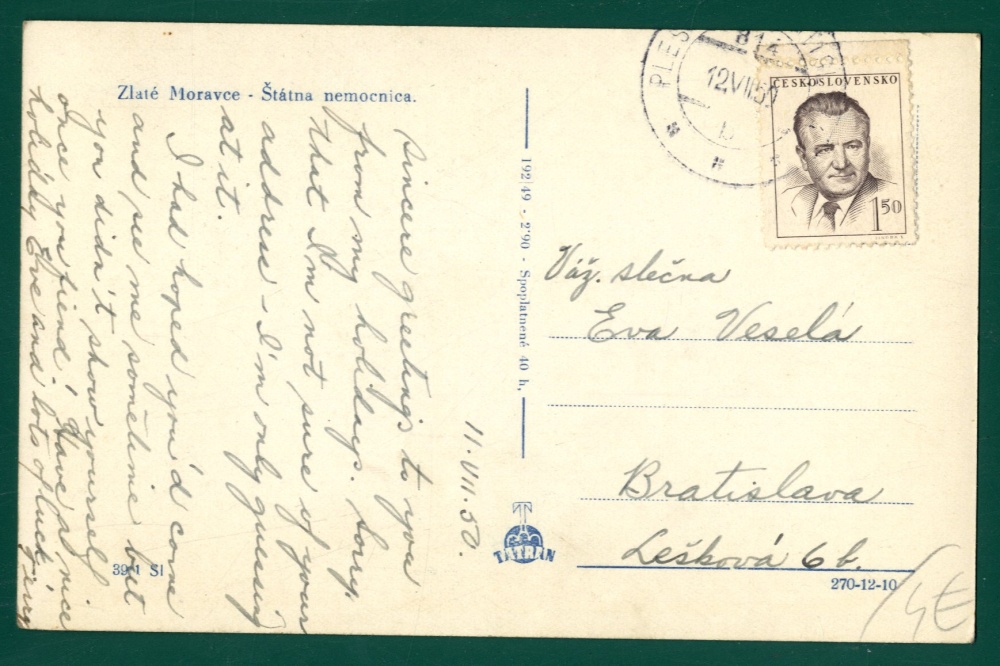 Zlaté Moravce - Štátna nemocnica.
11.VII.50.
Sincere greetings to you
from my holidays. Sorry
that I'm not sure of your
address - I'm only guessing
at it.
I had hoped you'd come
and see me sometime but
you didn't show yourself
once you fiend! Have a nice
holiday Eve and lots of luck
192|49 - 2·90 - Spoplatnené 40 h.
TATRAN
39-1 Sl
PLEŠ
814
12.VII.5
b
ČESKOSLOVENSKO
1 50
Váž. slečna
Eva Veselá
Bratislava
Lešková 6 b.
270-12-10
4€